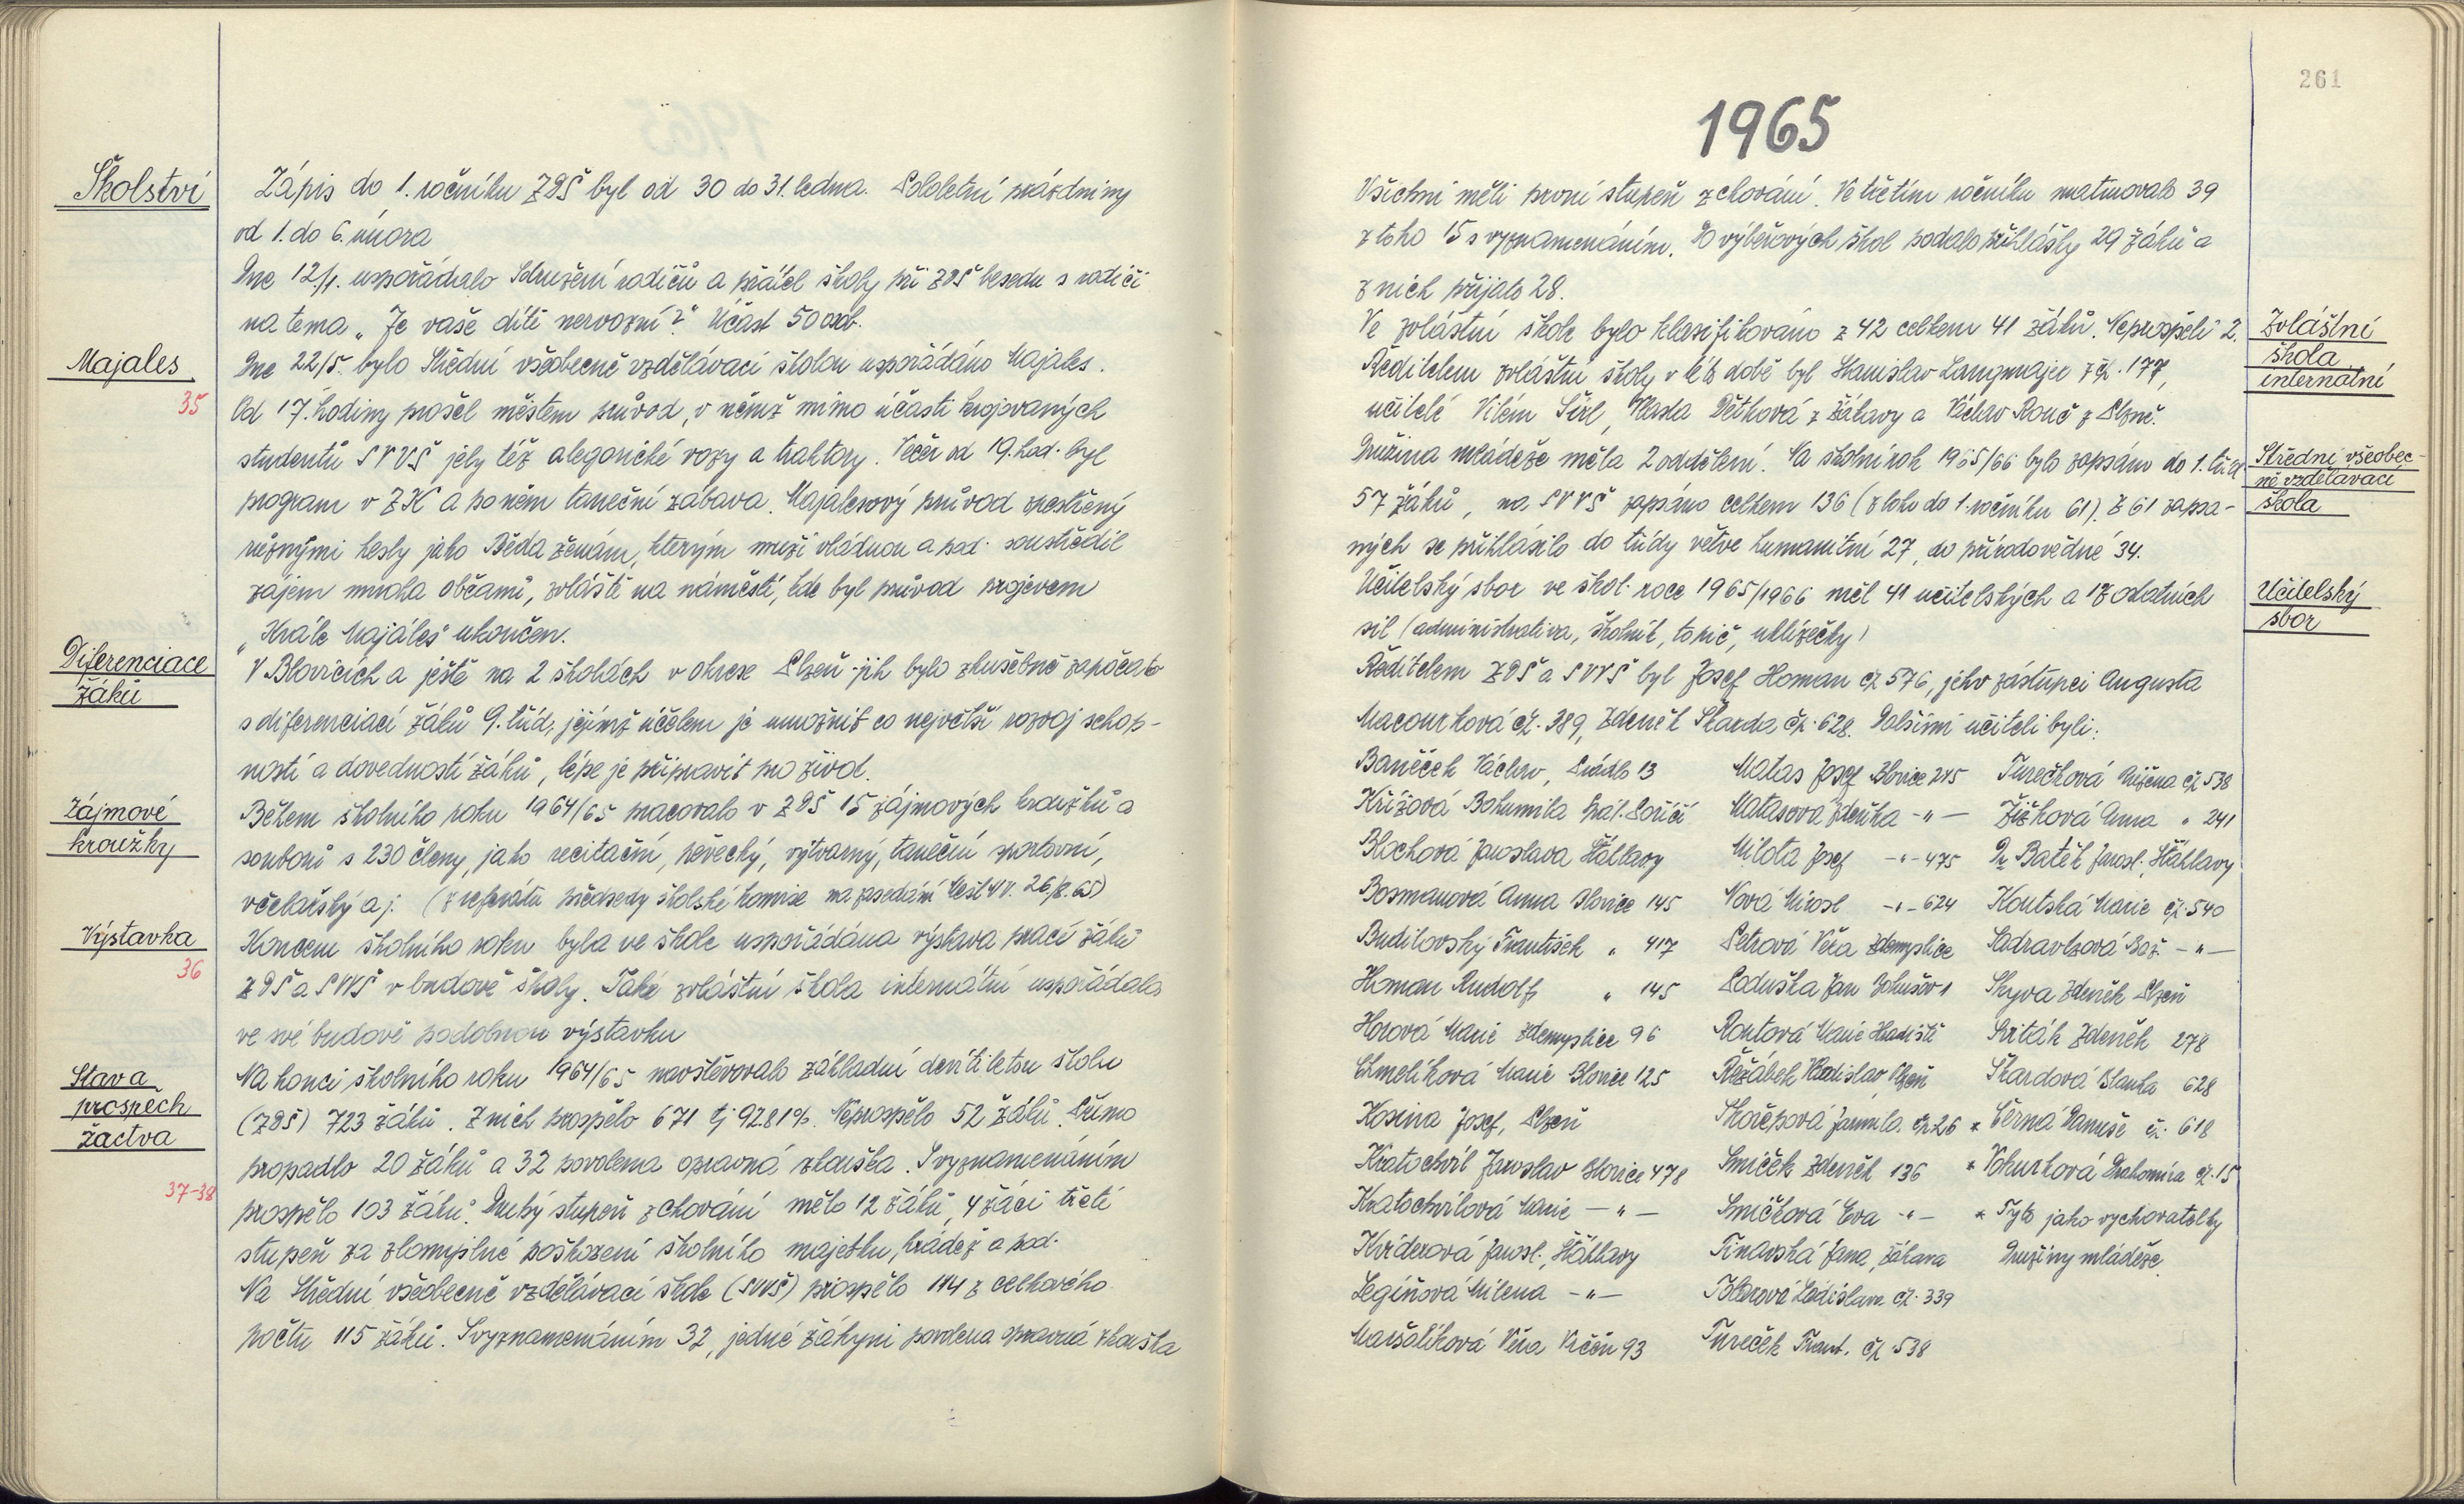 Školství
Zápis do 1. ročníku ZDŠ byl od 30 do 31. ledna. Pololetní prázdniny
od 1. do 6. února
Dne 12./1. uspořádalo Sdružení rodičů a přátel školy při ZDŠ besedu s rodiči
na tema „Je vaše dítě nervozní?" Účast 50 osob.
Majales
Dne 22/5. bylo Střední všeobecně vzdělávací školou uspořádáno Majales.
35
Od 17. hodiny prošel městem průvod, v němž mimo účasti krojovaných
studentů SVVŠ jely též alegorické vozy a traktory. Večer od 19. hod. byl
program v ZK a po něm taneční zábava. Majalesový průvod zpestřený
různými hesly jako Běda ženám, kterým muži vládnou a pod. soustředil
zájem mnoha občanů, zvláště na náměstí, kde byl průvod projevem
„Krále Majáles" ukončen.
Diferenciace
žáků
V Blovicích a ještě na 2 školách v okrese Plzeň-jih bylo zkušebně započato
s diferenciací žáků 9. tříd, jejímž účelem je umožnit co největší rozvoj schop-
ností a dovedností žáků, lépe je připravit pro život.
Zájmové
kroužky
Během školního roku 1964/65 pracovalo v ZDŠ 15 zájmových kroužků a
souborů s 230 členy, jako recitační, pěvecký, výtvarný, taneční sportovní,
včelařský aj. (z referátu předsedy školské komise na zasedání MěstNV. 26/8. 65)
Výstavka
36
Koncem školního roku byla ve škole uspořádána výstava prací žáků
ZDŠ a SVVŠ v budově školy. Také zvláštní škola internátní uspořádala
ve své budově podobnou výstavku
Stav a
prospěch
žactva
Na konci školního roku 1964/65 navštěvovalo základní devítiletou školu
(ZDŠ) 723 žáků. Z nich prospělo 671 tj 92.81%. Neprospělo 52 žáků. Přímo
propadlo 20 žáků a 32 povolena opravná zkouška. S vyznamenáním
37-38
prospělo 103 žáků. Druhý stupeň z chování mělo 12 žáků, 4 žáci třetí
stupeň za zlomyslné poškození školního majetku, krádež a pod.
Na Střední všeobecně vzdělávací škole (SVVŠ) prospělo 114 z celkového
počtu 115 žáků. S vyznamenáním 32, jedné žákyni povolena opravná zkouška
261
1965
Všichni měli první stupeň z chování. Ve třetím ročníku maturovalo 39
z toho 15 s vyznamenáním. Do výběrových škol podalo přihlášky 29 žáků a
z nich přijato 28.
Zvláštní
škola
internátní
Ve zvláštní škole bylo klasifikováno z 42 celkem 41 žáků. Neprospěli 2.
Ředitelem zvláštní školy v této době byl Stanislav Langmajer z čp. 177,
učitelé Vilém Šírl, Vlasta Dětková z Žákavy a Václav Rouč z Plzně.
Družina mládeže měla 2 oddělení. Na školní rok 1965/66 bylo zapsáno do 1. tříd
Střední všeobec-
ně vzdělávací
škola
57 žáků, na SVVŠ zapsáno celkem 136 (z toho do 1. ročníku 61). Z 61 zapsa-
ných se přihlásilo do třídy větve humanitní 27, do přírodovědné 34.
Učitelský
sbor
Učitelský sbor ve škol. roce 1965/1966 měl 41 učitelských a 17 ostatních
sil (administrativa, školník, topič, uklízečky)
Ředitelem ZDŠ a SVVŠ byl Josef Homan čp 576, jeho zástupci Augusta
Macourková čp. 389, Zdeněk Škarda čp. 628. Dalšími učiteli byli:
Baněček Václav, Prádlo 13 Matas Josef Blovice 245 Turečková Růžena čp 538
Křížová Bohumila Spál. Poříčí Matasová Zdeňka -„- Žižková Anna „ 241
Blochová Jaroslava Šťáhlavy Milota Josef -„- 475 Dr Batěk Jarosl. Šťáhlavy
Bosmanová Anna Blovice 145 Nová Mirosl -„- 624 Koutská Marie čp. 540
Budilovský František „ 417 Petrová Věra Zdemyslice Sadravtzová Bož. -„-
Homan Rudolf „ 145 Poduška Jan Bohušov 1 Skyva Zdeněk Plzeň
Horová Marie Zdemyslice 96 Routová Marie Hradiště Sviták Zdeněk 278
Chmelíková Marie Blovice 125 Řežábek Vladislav, Plzeň Škardová Blanka 628
Kosina Josef, Plzeň Skořepová Jarmila. čp 26 * Černá Danuše čp. 618
Kratochvíl Jaroslav Blovice 478 Smíček Zdeněk 136 * Vokurková Drahomíra čp. 15
Kratochvílová Marie -„- Smíčková Eva -„- * Tyto jako vychovatelky
Kviderová Jarosl., Šťáhlavy Tinavská Jana, Žákava Družiny mládeže.
Legiňová Milena -„- Tolarová Ladislava čp. 339
Maršalíková Věra Vrčeň 93 Tureček Frant. čp. 538